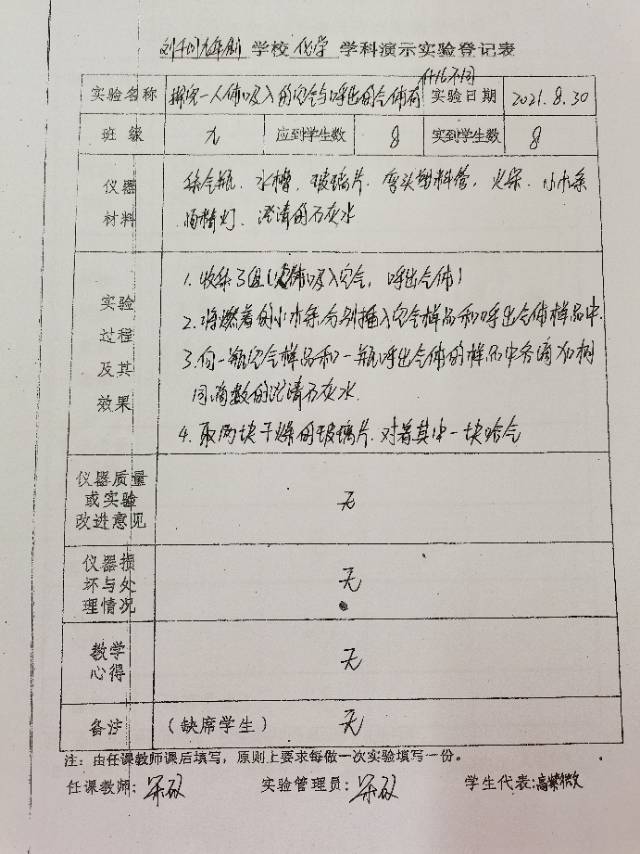 学校 化学 学科演示实验登记表
什么不同
实验名称 探究一人体吸入的空气与呼出的气体有 实验日期 2021.8.30
班级 九 应到学生数 8 实到学生数 8
仪器 集气瓶、水槽、玻璃片、弯头塑料管、火柴、小木条
材料 酒精灯、澄清的石灰水
1. 收集 吸入空气,呼出气体;
实验
2. 将燃着的小木条分别插入空气样品和呼出气体样品中.
过程
3. 向一瓶空气样品和一瓶呼出气体的样品中各滴加相
及其
同滴数的澄清石灰水.
效果
4. 取两块干燥的玻璃片.对着其中一块哈气
仪器质量
或实验 无
改进意见
仪器损
坏与处 无
理情况
教学
心得 无
备注 (缺席学生) 无
注:由任课教师课后填写,原则上要求每做一次实验填写一份。
任课教师: 实验管理员: 学生代表: